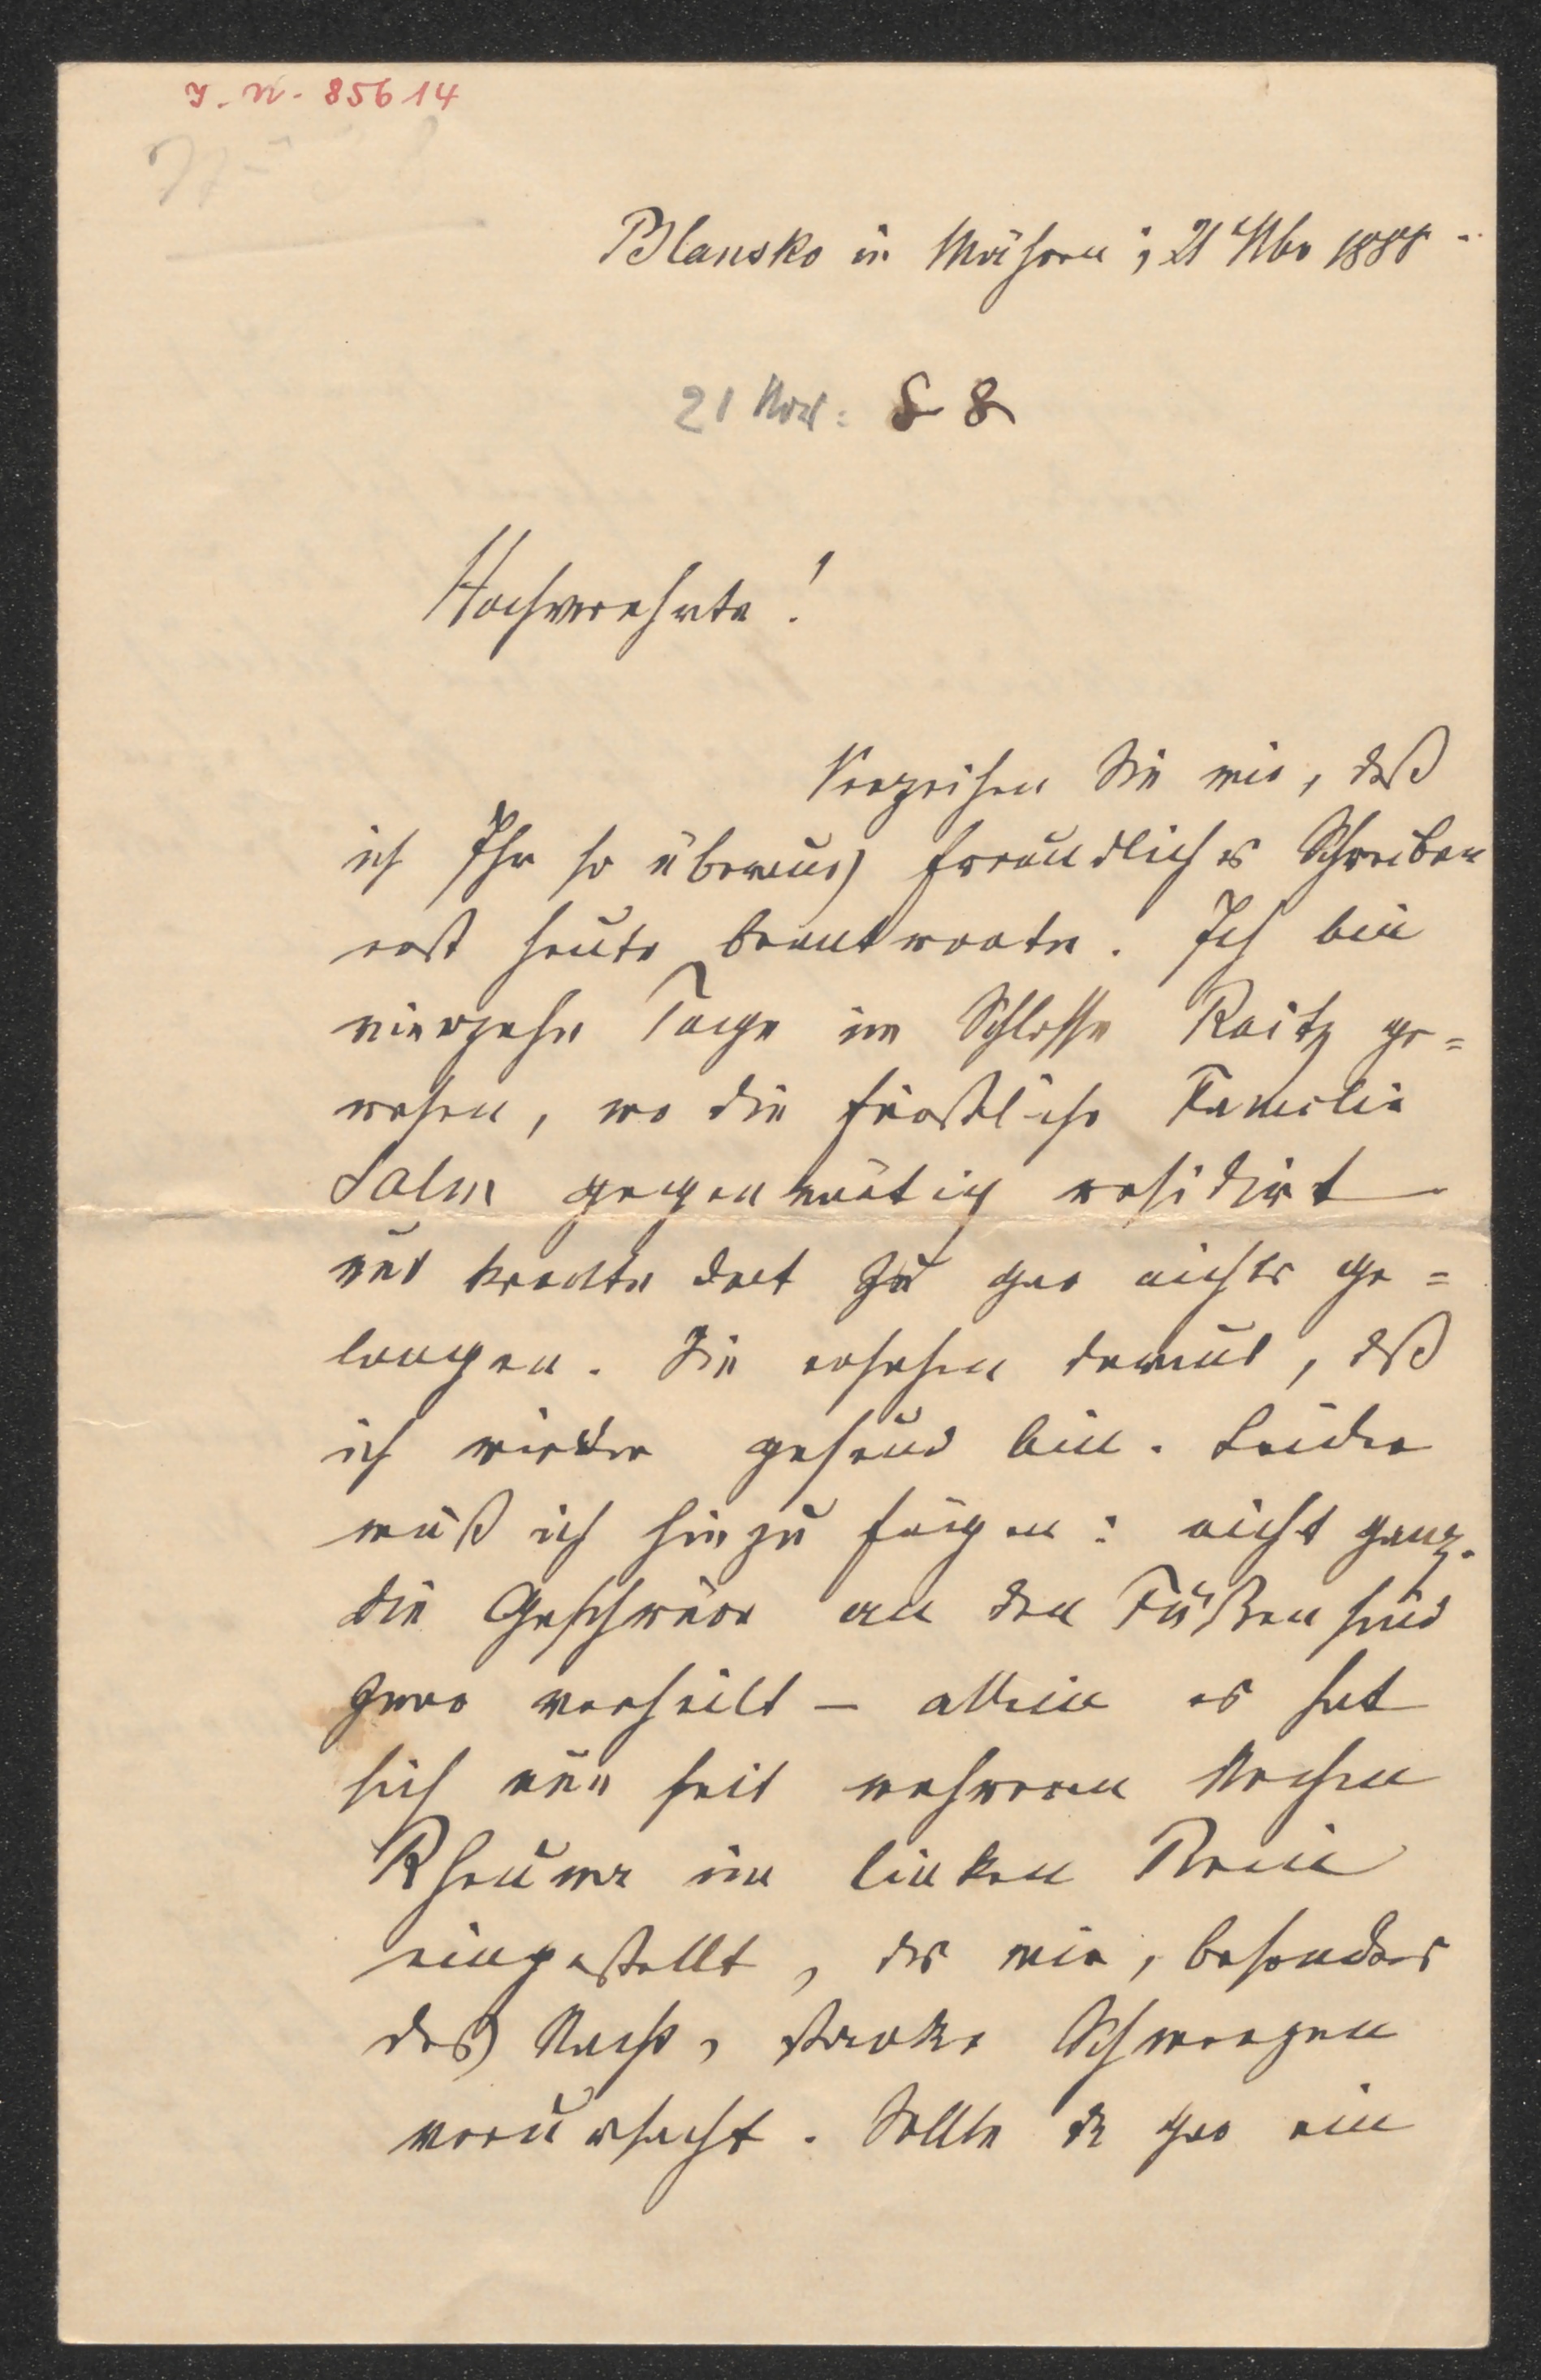 J. N. 85614
Blansko in Mähren; 21 Nbr 1888
21 Nov: 88
Hochverehrte!
Verzeihen Sie mir, daß
ich Ihr so überaus freundliches Schreiben
erst heute beantworte. Ich bin
vierzehn Tage im Schlosse Raitz ge=
wesen, wo die fürstliche Familie
Salm gegenwärtig residirt
und konnte dort zu gar nichts ge=
langen. Sie ersehen daraus, daß
ich wieder gesund bin. Leider
muß ich hinzu fügen: nicht ganz.
Die Geschwüre an den Füßen sind
zwar verheilt – allein es hat
sich nun seit mehreren Wochen
Rheuma im linken Bein
eingestellt, das mir, besonders
des Nachts, starke Schmerzen
verursacht. Sollte da gar ein